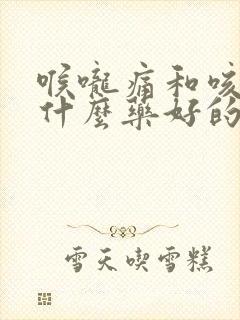 喉嚨痛和咳
什麼藥好的
雪天喫雪糕